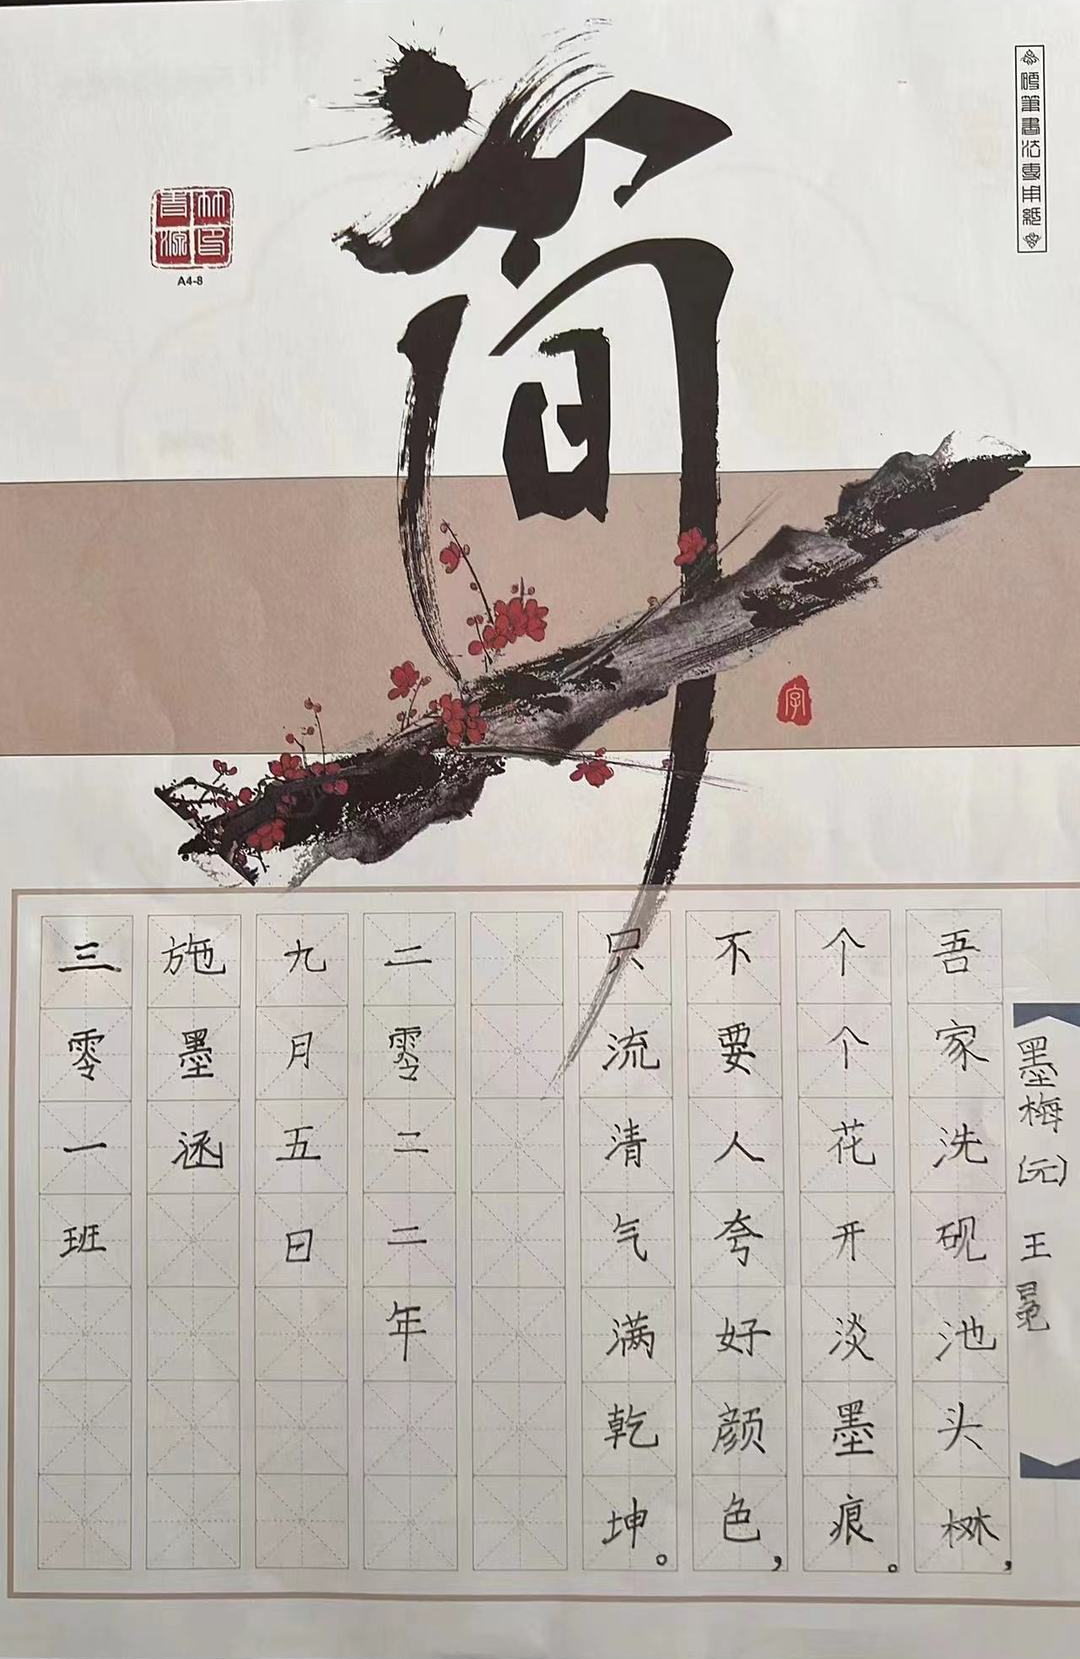 硬筆書法專用紙
简
A4-8
字
墨梅(元) 王冕
吾家洗砚池头树,
个个花开淡墨痕。
不要人夸好颜色,
只流清气满乾坤。
二零二二年
九月五日
施墨涵
三零一班